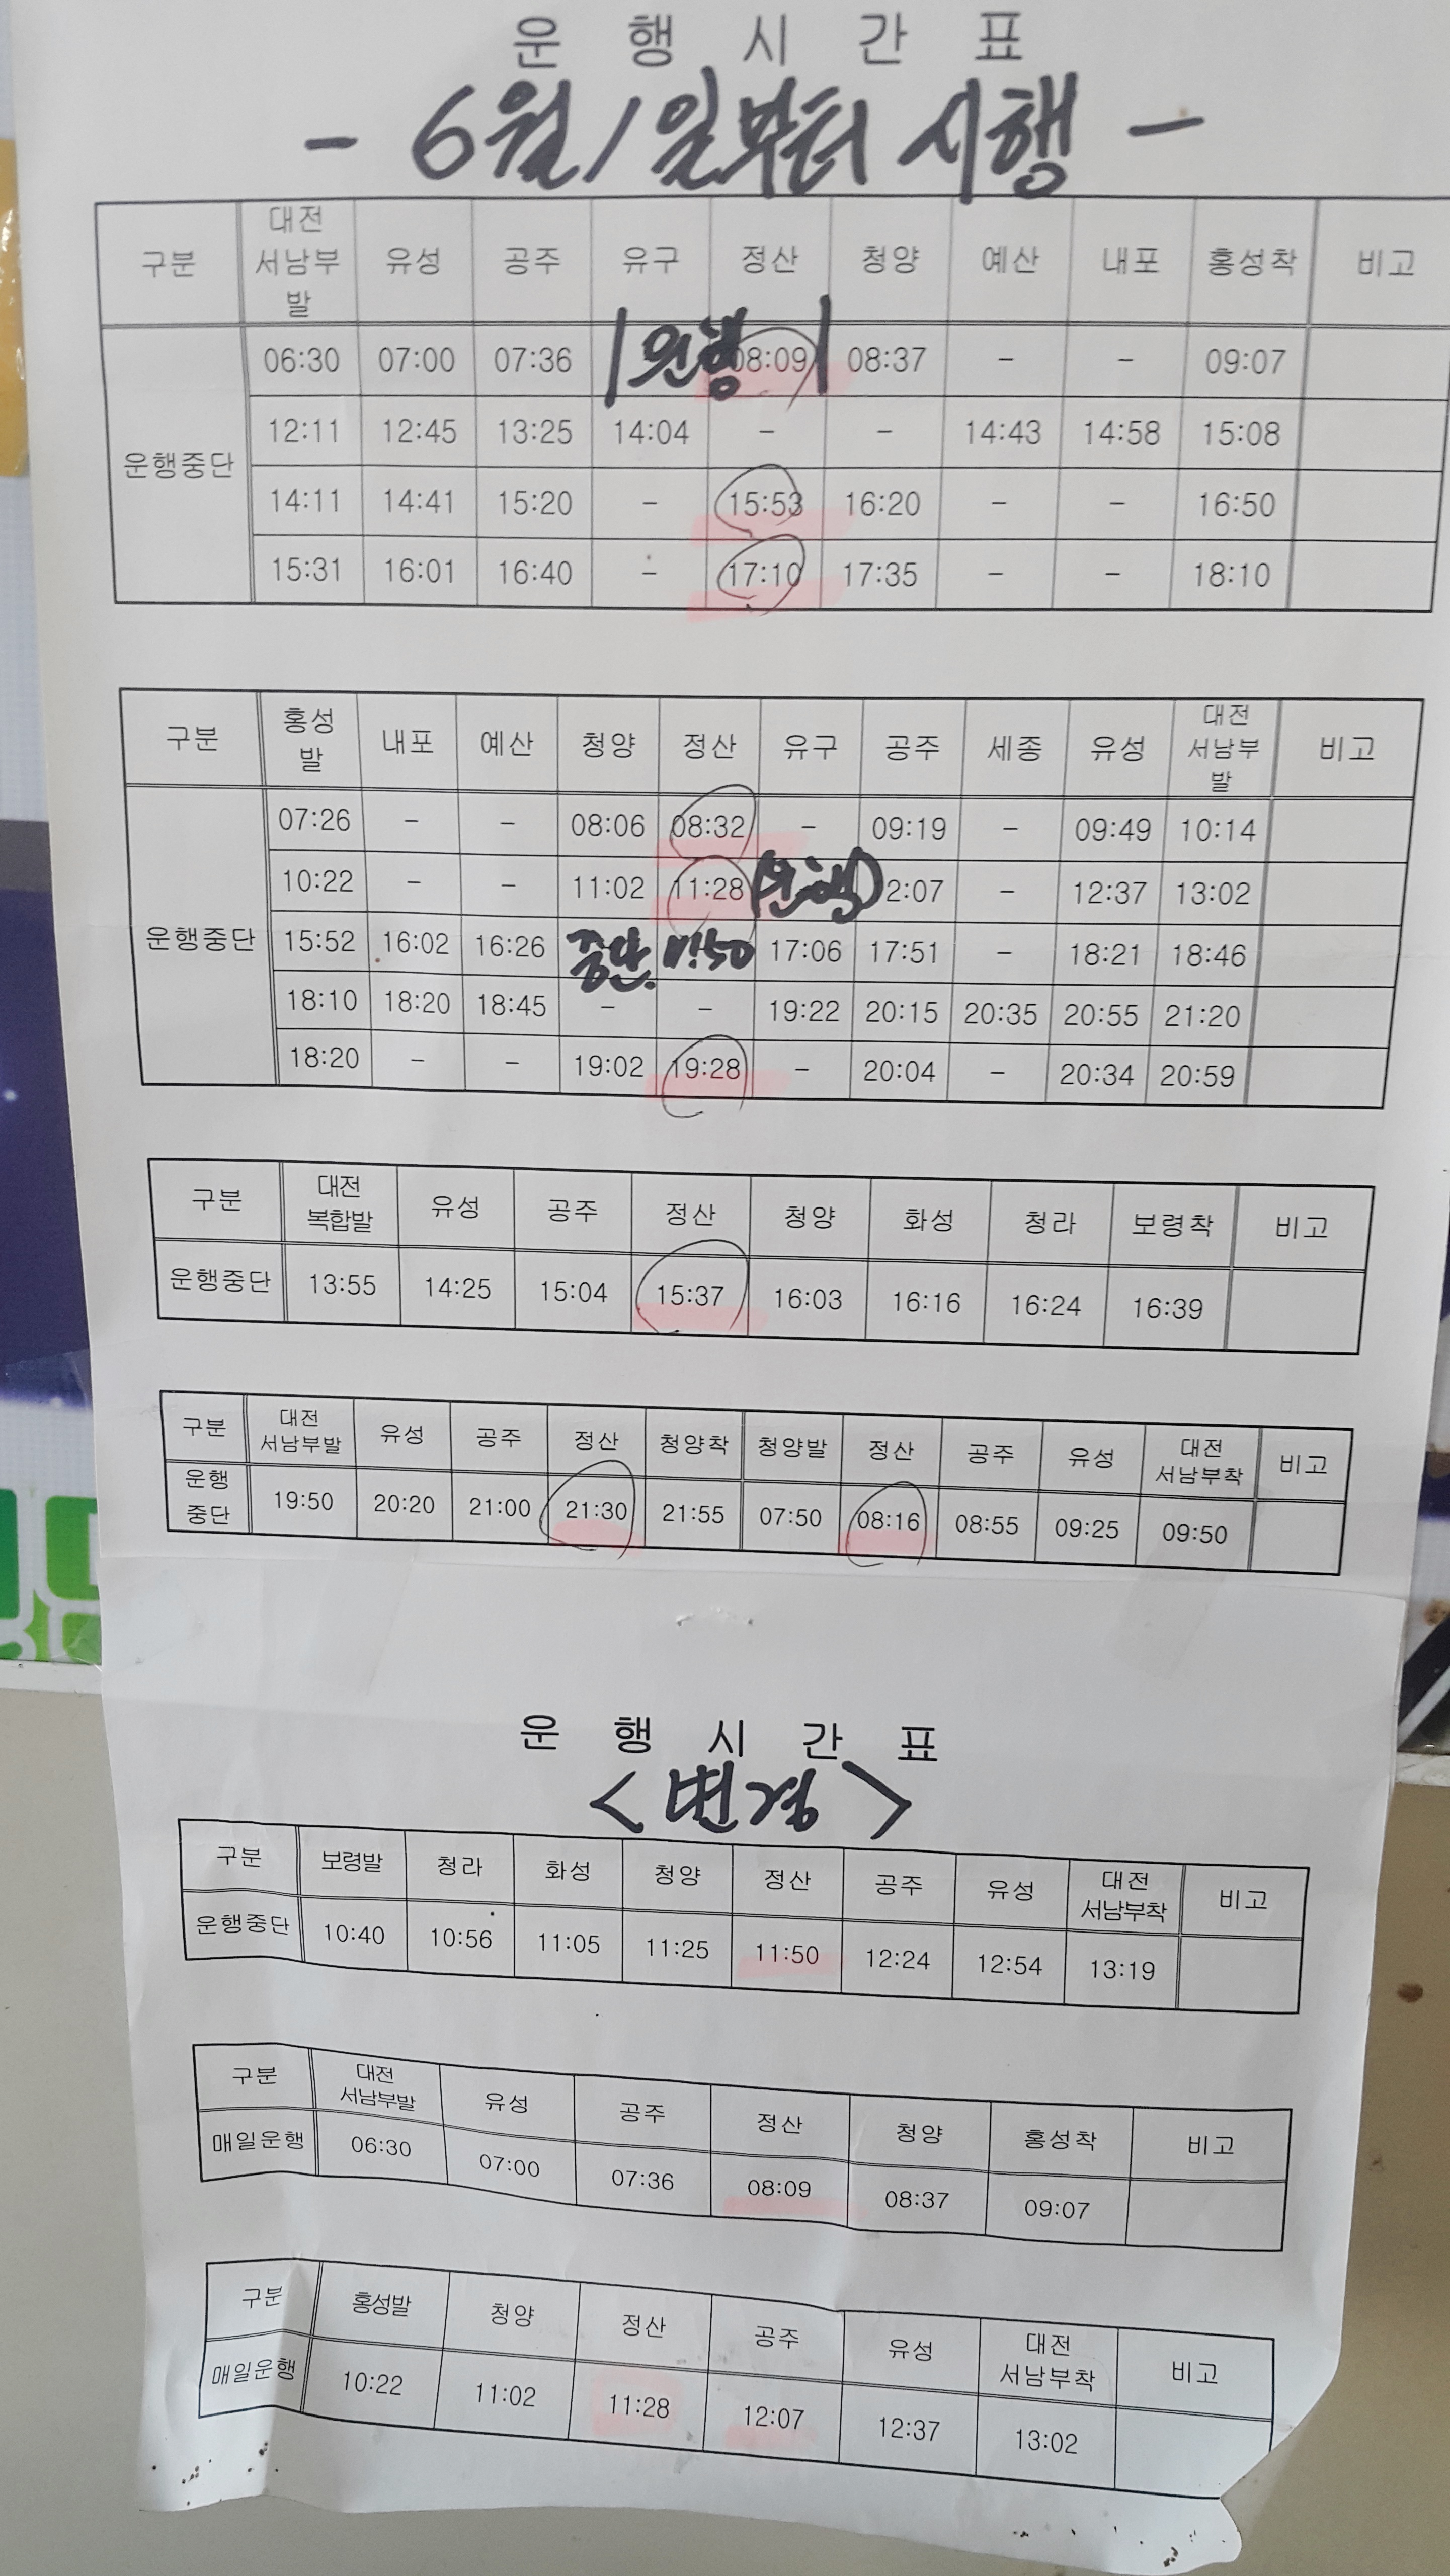 운 행 시 간 표
- 6월 1일부터 시행 -
구분 대전 서남부 발 유성 공주 유구 정산 청양 예산 내포 홍성착 비고
운행중단
06:30 07:00 07:36 (운행) 08:09 08:37 - - 09:07
12:11 12:45 13:25 14:04 - - 14:43 14:58 15:08
14:11 14:41 15:20 - 15:53 16:20 - - 16:50
15:31 16:01 16:40 - 17:10 17:35 - - 18:10
구분 홍성 발 내포 예산 청양 정산 유구 공주 세종 유성 대전 서남부 발 비고
운행중단
07:26 - - 08:06 08:32 - 09:19 - 09:49 10:14
10:22 - - 11:02 11:28 (운행) 2:07 - 12:37 13:02
15:52 16:02 16:26 중단. 11:50 17:06 17:51 - 18:21 18:46
18:10 18:20 18:45 - - 19:22 20:15 20:35 20:55 21:20
18:20 - - 19:02 19:28 - 20:04 - 20:34 20:59
구분 대전 복합발 유성 공주 정산 청양 화성 청라 보령착 비고
운행중단 13:55 14:25 15:04 15:37 16:03 16:16 16:24 16:39
구분 대전 서남부발 유성 공주 정산 청양착 청양발 정산 공주 유성 대전 서남부착 비고
운행 중단 19:50 20:20 21:00 21:30 21:55 07:50 08:16 08:55 09:25 09:50
운 행 시 간 표
<변경>
구분 보령발 청라 화성 청양 정산 공주 유성 대전 서남부착 비고
운행중단 10:40 10:56 11:05 11:25 11:50 12:24 12:54 13:19
구분 대전 서남부발 유성 공주 정산 청양 홍성착 비고
매일운행 06:30 07:00 07:36 08:09 08:37 09:07
구분 홍성발 청양 정산 공주 유성 대전 서남부착 비고
매일운행 10:22 11:02 11:28 12:07 12:37 13:02